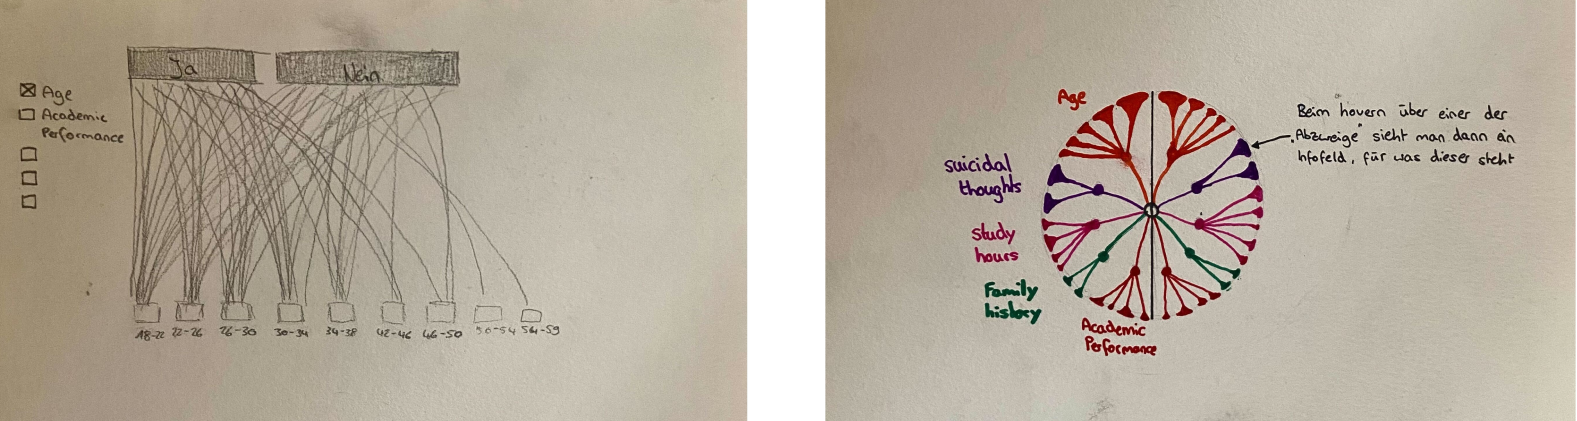 Ja
Nein
Age
Academic
Performance
18-22 22-26 26-30 30-34 34-38 42-46 46-50 50-54 54-59
Age
suicidal
thoughts
study
hours
Family
history
Academic
Performance
Beim hovern über einer der
"Abzweige" sieht man dann ein
Infofeld, für was dieser steht